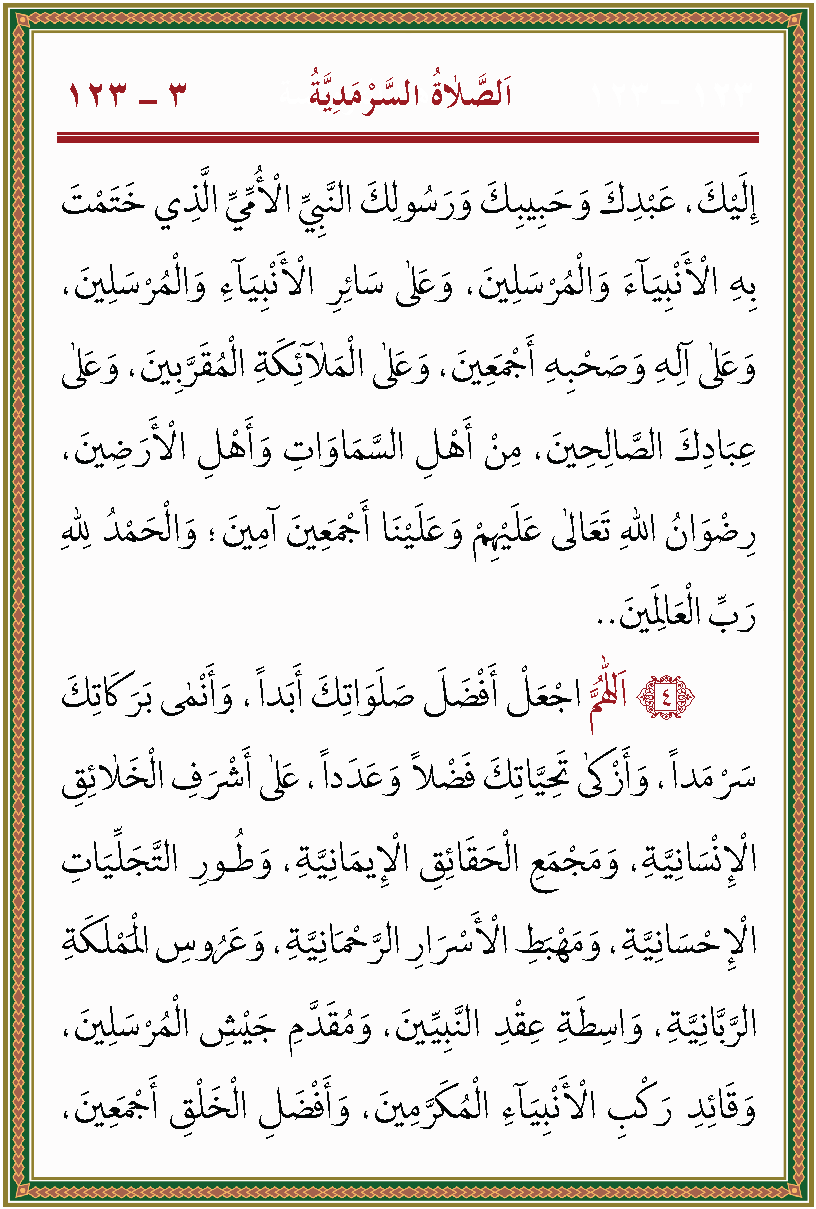 اَلصَّلَاةُ السَّرْمَدِيَّةُ ٣ – ١٢٣
إِلَيْكَ، عَبْدِكَ وَحَبِيبِكَ وَرَسُولِكَ النَّبِيِّ الْأُمِّيِّ الَّذِي خَتَمْتَ
بِهِ الْأَنْبِيَآءَ وَالْمُرْسَلِينَ، وَعَلٰى سَائِرِ الْأَنْبِيَآءِ وَالْمُرْسَلِينَ،
وَعَلٰى آلِهِ وَصَحْبِهِ أَجْمَعِينَ، وَعَلٰى الْمَلَآئِكَةِ الْمُقَرَّبِينَ، وَعَلٰى
عِبَادِكَ الصَّالِحِينَ، مِنْ أَهْلِ السَّمَاوَاتِ وَأَهْلِ الْأَرَضِينَ،
رِضْوَانُ اللهِ تَعَالٰى عَلَيْهِمْ وَعَلَيْنَا أَجْمَعِينَ آمِينَ ؛ وَالْحَمْدُ لِلهِ
رَبِّ الْعَالَمِينَ..
٤ اَللّٰهُمَّ اجْعَلْ أَفْضَلَ صَلَوَاتِكَ أَبَداً ، وَأَنْمٰى بَرَكَاتِكَ
سَرْمَداً ، وَأَزْكٰى تَحِيَّاتِكَ فَضْلاً وَعَدَداً ، عَلٰى أَشْرَفِ الْخَلَائِقِ
الْإِنْسَانِيَّةِ ، وَمَجْمَعِ الْحَقَائِقِ الْإِيمَانِيَّةِ ، وَطُورِ التَّجَلِّيَاتِ
الْإِحْسَانِيَّةِ ، وَمَهْبَطِ الْأَسْرَارِ الرَّحْمَانِيَّةِ ، وَعَرُوسِ الْمَمْلَكَةِ
الرَّبَّانِيَّةِ ، وَاسِطَةِ عِقْدِ النَّبِيِّينَ، وَمُقَدَّمِ جَيْشِ الْمُرْسَلِينَ،
وَقَائِدِ رَكْبِ الْأَنْبِيَآءِ الْمُكَرَّمِينَ، وَأَفْضَلِ الْخَلْقِ أَجْمَعِينَ،